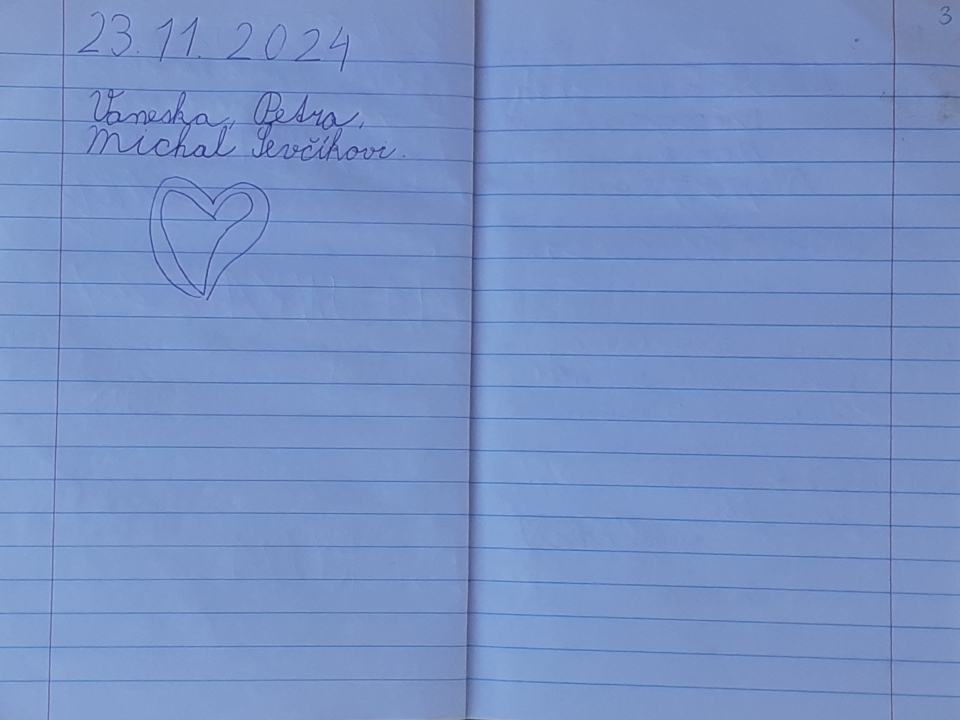 23. 11. 2024
Vaneska, Petra,
Michal Ševčíkovi.
3